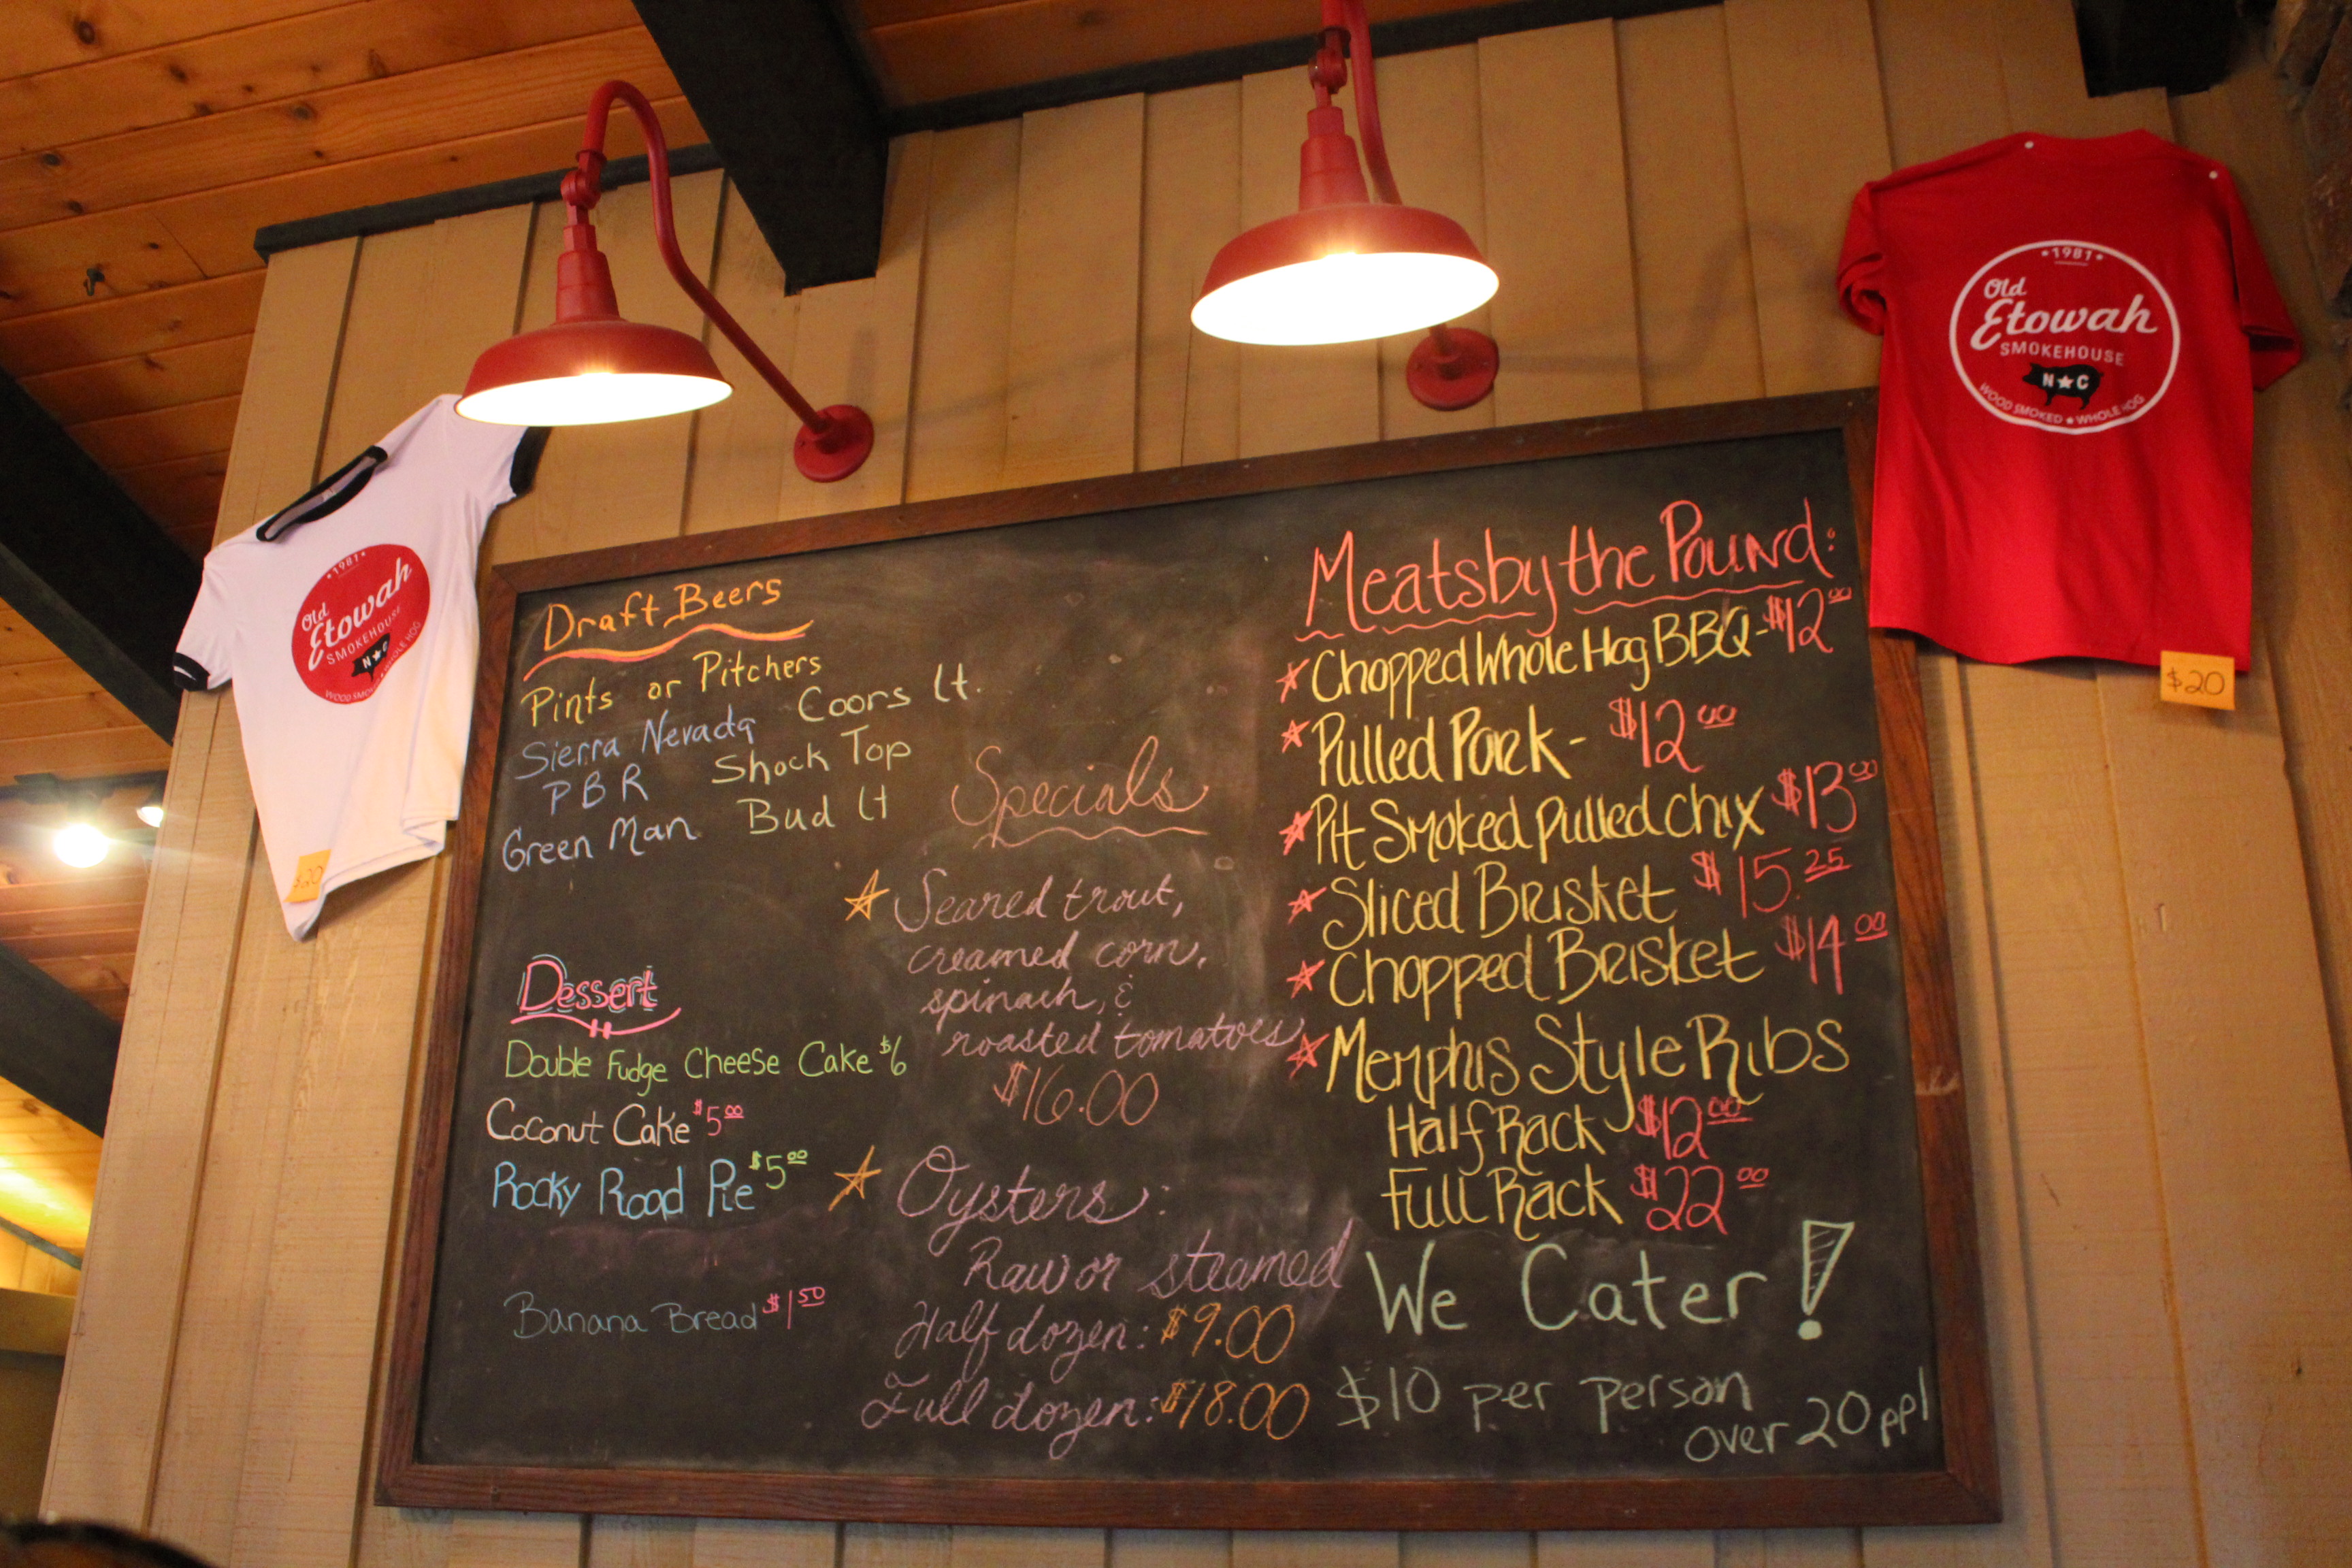 1981
Old
Etowah
SMOKEHOUSE
N★C
WOOD SMOKED ★ WHOLE HOG
$20
1981
Old
Etowah
SMOKEHOUSE
N★C
WOOD SMOKED WHOLE HOG
$20
Draft Beers
Pints or Pitchers
Sierra Nevada Coors Lt.
PBR Shock Top
Green Man Bud Lt
Dessert
Double Fudge Cheese Cake $6
Coconut Cake $5.00
Rocky Road Pie $5.00
Banana Bread $1.50
Specials
☆ Seared trout,
creamed corn,
spinach, &
roasted tomatoes
$16.00
☆ Oysters:
Raw or steamed
Half dozen: $9.00
Full dozen: $18.00
Meats by the Pound:
☆ Chopped Whole Hog BBQ - $12.00
☆ Pulled Pork - $12.00
☆ Pit Smoked Pulled Chix $13.00
☆ Sliced Brisket $15.25
☆ Chopped Brisket $14.00
☆ Memphis Style Ribs
Half Rack $12.00
Full Rack $22.00
We Cater!
$10 per person
over 20 ppl